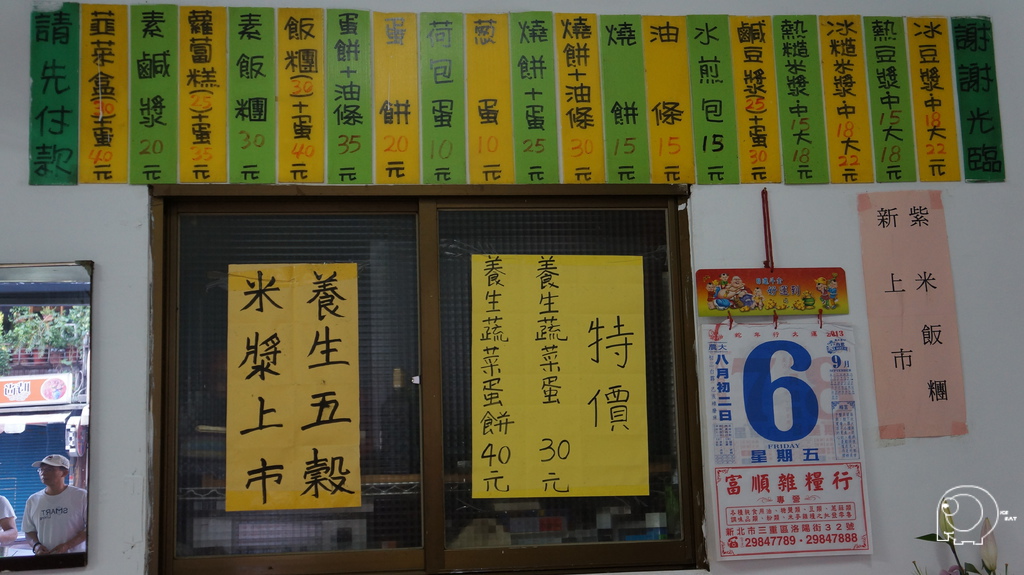 請先付款
韮菜盒(30)+蛋40元
素鹹漿20元
蘿蔔糕(25)+蛋35元
素飯糰30元
飯糰(30)+蛋40元
蛋餅+油條35元
蛋餅20元
荷包蛋10元
葱蛋10元
燒餅+蛋25元
燒餅+油條30元
燒餅15元
油條15元
水煎包15元
鹹豆漿25+蛋30元
熱糙米漿中15大18元
冰糙米漿中18大22元
熱豆漿中15大18元
冰豆漿中18大22元
謝謝光臨
養生五穀
米漿上市
特價
養生蔬菜蛋 30元
養生蔬菜蛋餅40元
紫米飯糰
新上市
2013
農大
八月初二日
6
9月
FRIDAY
星期五
富順雜糧行
專營
新北市三重區洛陽街32號
29847789·29847888
SMART
ICE
EAT